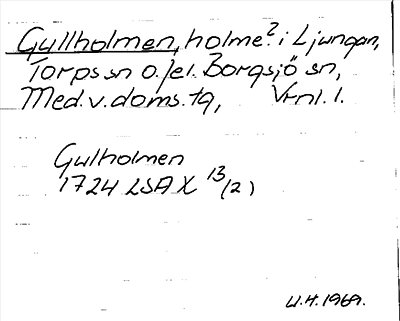 Gullholmen, holme? i Ljungan,
Torps sn o./el. Borgsjö sn,
Med. v. doms. tg, Vrnl. l.
Gulholmen
1724 LSA X 13/2)
U.H. 1969.